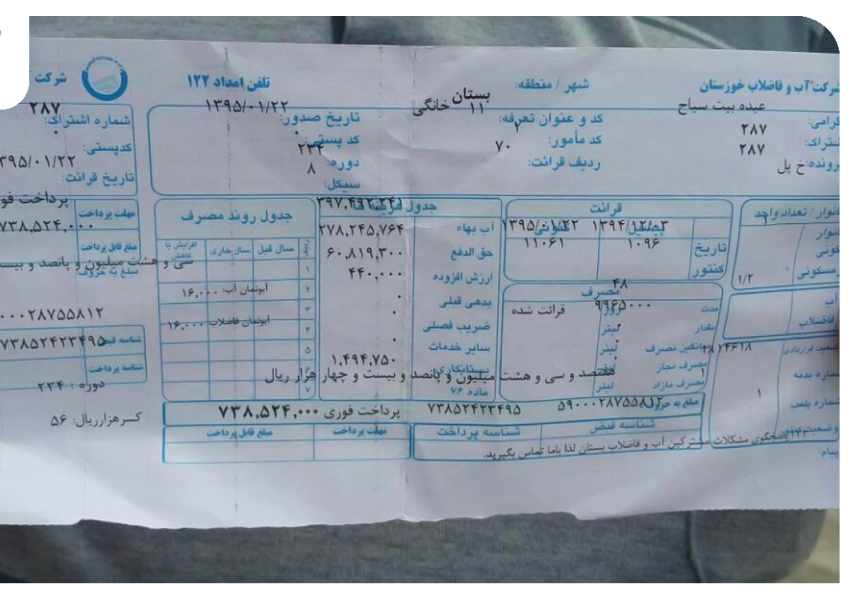 شرکت آب و فاضلاب خوزستان
شهر / منطقه: بستان
تلفن امداد ۱۲۲
شرکت
گرامی: عیده بیت سیاح
شتراک: ۲۸۷
۲۸۷
پرونده: خ پل
کد و عنوان تعرفه: ۱۱ خانگی
کد مأمور: ۲
ردیف قرائت: ۷۰
تاریخ صدور: ۱۳۹۵/۰۱/۲۲
کد پستی: ۰
دوره: ۲۳۴
سیکل: ۸
شماره اشتراک: ۲۸۷
کدپستی: ۰
تاریخ قرائت: ۱۳۹۵/۰۱/۲۲
انوار / تعداد واحد
خانوار
مسکونی
غیرمسکونی ۱/۲
آب
فاضلاب
شماره بدنه
شماره پلمب ۱
پیام:
قرائت
تاریخ ۱۳۹۵/۰۱/۲۲
کنتور ۱۰۹۶ ۱۱۰۶۱
مصرف
مدت ۴۸ روز
مقدار ۹۹۶۵۰۰۰ لیتر قرائت شده
میانگین مصرف لیتر
مصرف مجاز لیتر
مصرف مازاد لیتر
آب بهاء ۳۹۷,۴۹۲,۲۴۱
حق الدفع ۲۷۸,۲۴۵,۷۶۴
ارزش افزوده ۶۰,۸۱۹,۳۰۰
بدهی قبلی ۴۴۰,۰۰۰
ضریب فصلی ۰
سایر خدمات ۰
بستانکاری ۰
ماده ۷۶ ۱,۴۹۴,۷۵۰
جدول روند مصرف
سال قبل سال جاری افزایش یا کاهش
۱
۲ آبونمان آب: ۱۶,۰۰۰
۳
۴ آبونمان فاضلاب: ۱۶,۰۰۰
۵
۶
۷
مبلغ به حروف: هفتصد و سی و هشت میلیون و پانصد و بیست و چهار هزار ریال
۵۹۰۰۰۲۸۷۵۵۸۱۲ ۷۳۸۵۲۴۲۳۴۹۵ پرداخت فوری ۷۳۸,۵۲۴,۰۰۰
شناسه قبض شناسه پرداخت مهلت پرداخت مبلغ قابل پرداخت
پاسخگوی مشکلات مشترکین آب و فاضلاب بستان لذا باما تماس بگیرید.
مهلت پرداخت پرداخت فو
مبلغ قابل پرداخت ۷۳۸,۵۲۴,۰۰۰
مبلغ به حروف
سی و هشت میلیون و پانصد و بیست
۰۰۰۲۸۷۵۵۸۱۲
شناسه قبض
۷۳۸۵۲۴۲۳۴۹۵
شناسه پرداخت
دوره: ۲۳۴
کسرهزارریال: ۵۶